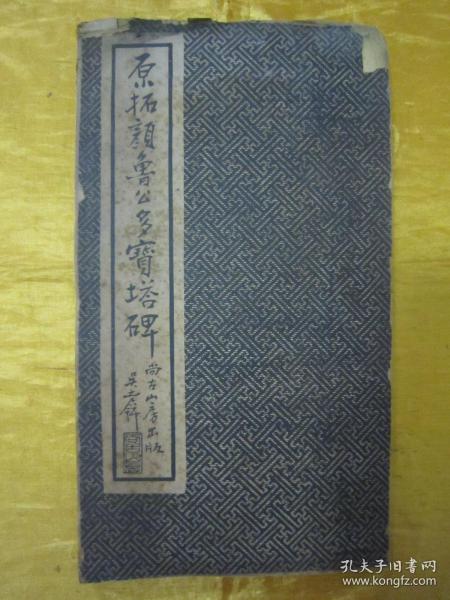 原拓顏魯公多寶塔碑
尚古山房出版
孔夫子旧书网
www.kongfz.com